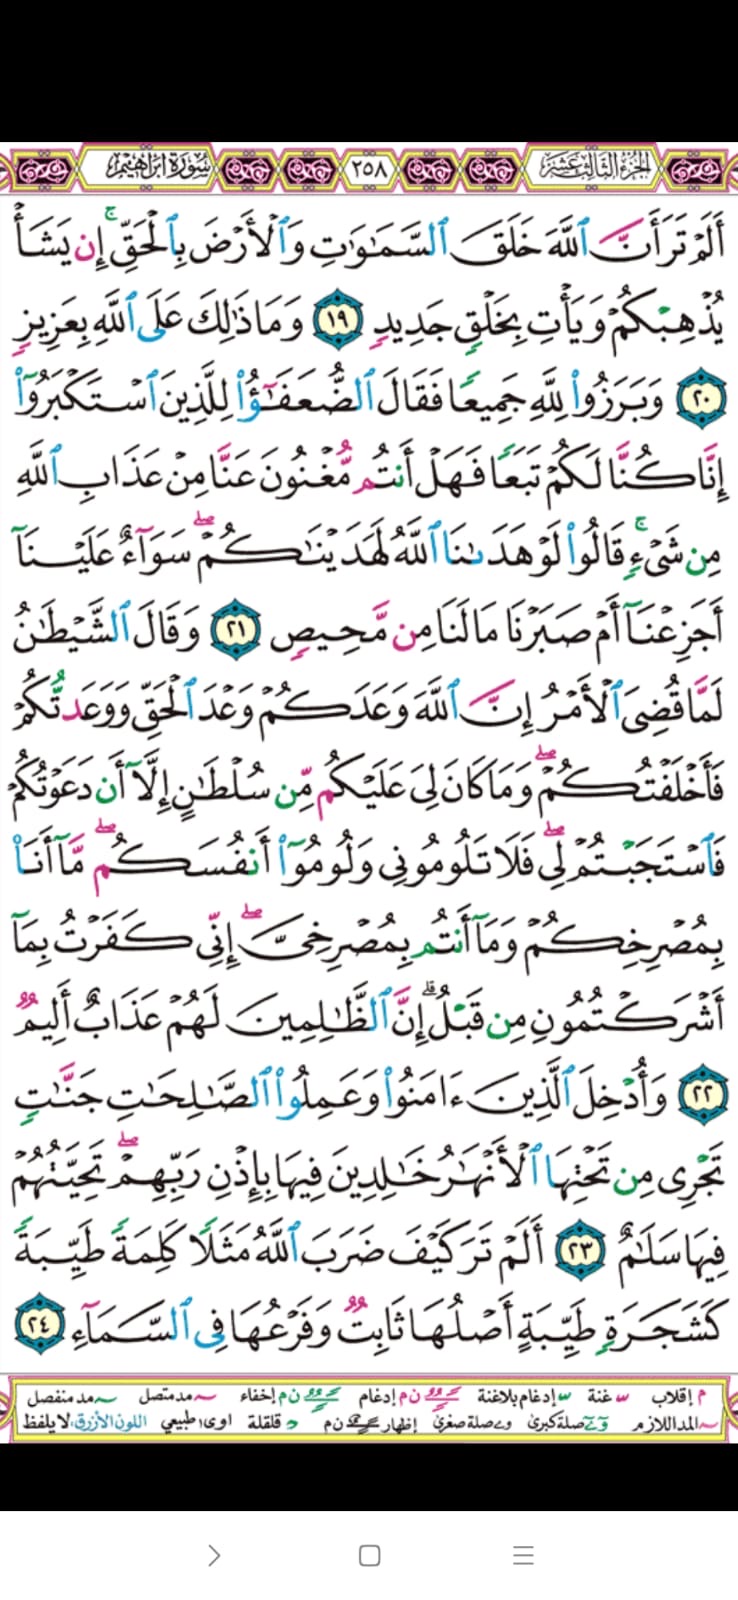 الجزء الثالث عشر ٢٥٨ سورة ابراهيم
أَلَمْ تَرَ أَنَّ ٱللَّهَ خَلَقَ ٱلسَّمَٰوَٰتِ وَٱلْأَرْضَ بِٱلْحَقِّ ۚ إِن يَشَأْ
يُذْهِبْكُمْ وَيَأْتِ بِخَلْقٍ جَدِيدٍ ١٩ وَمَا ذَٰلِكَ عَلَى ٱللَّهِ بِعَزِيزٍ
٢٠ وَبَرَزُوا۟ لِلَّهِ جَمِيعًا فَقَالَ ٱلضُّعَفَٰٓؤُا۟ لِلَّذِينَ ٱسْتَكْبَرُوٓا۟
إِنَّا كُنَّا لَكُمْ تَبَعًا فَهَلْ أَنتُم مُّغْنُونَ عَنَّا مِنْ عَذَابِ ٱللَّهِ
مِن شَىْءٍ ۚ قَالُوا۟ لَوْ هَدَىٰنَا ٱللَّهُ لَهَدَيْنَٰكُمْ ۖ سَوَآءٌ عَلَيْنَآ
أَجَزِعْنَآ أَمْ صَبَرْنَا مَا لَنَا مِن مَّحِيصٍ ٢١ وَقَالَ ٱلشَّيْطَٰنُ
لَمَّا قُضِىَ ٱلْأَمْرُ إِنَّ ٱللَّهَ وَعَدَكُمْ وَعْدَ ٱلْحَقِّ وَوَعَدتُّكُمْ
فَأَخْلَفْتُكُمْ ۖ وَمَا كَانَ لِىَ عَلَيْكُم مِّن سُلْطَٰنٍ إِلَّآ أَن دَعَوْتُكُمْ
فَٱسْتَجَبْتُمْ لِى ۖ فَلَا تَلُومُونِى وَلُومُوٓا۟ أَنفُسَكُم ۖ مَّآ أَنَا۠
بِمُصْرِخِكُمْ وَمَآ أَنتُم بِمُصْرِخِىَّ ۖ إِنِّى كَفَرْتُ بِمَآ
أَشْرَكْتُمُونِ مِن قَبْلُ ۗ إِنَّ ٱلظَّٰلِمِينَ لَهُمْ عَذَابٌ أَلِيمٌ
٢٢ وَأُدْخِلَ ٱلَّذِينَ ءَامَنُوا۟ وَعَمِلُوا۟ ٱلصَّٰلِحَٰتِ جَنَّٰتٍ
تَجْرِى مِن تَحْتِهَا ٱلْأَنْهَٰرُ خَٰلِدِينَ فِيهَا بِإِذْنِ رَبِّهِمْ ۖ تَحِيَّتُهُمْ
فِيهَا سَلَٰمٌ ٢٣ أَلَمْ تَرَ كَيْفَ ضَرَبَ ٱللَّهُ مَثَلًا كَلِمَةً طَيِّبَةً
كَشَجَرَةٍ طَيِّبَةٍ أَصْلُهَا ثَابِتٌ وَفَرْعُهَا فِى ٱلسَّمَآءِ ٢٤
م إقلاب غنة إدغام بلاغنة ن م إدغام ن م إخفاء مد متصل مد منفصل
المد اللازم صلة كبرى صلة صغرى إظهار ن م قلقلة اوى طبيعي اللون الأزرق: لا يلفظ